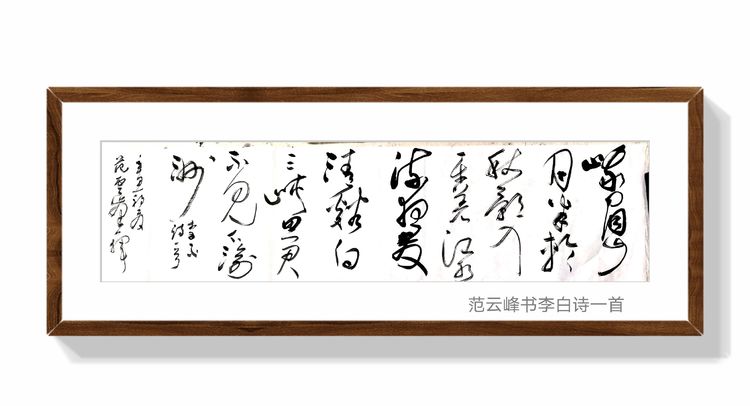 峨眉山
月半輪
秋影入
平羌江水
流夜發
清谿向
三峽思君
不見下渝
州
李白詩
范雲峰
范云峰书李白诗一首